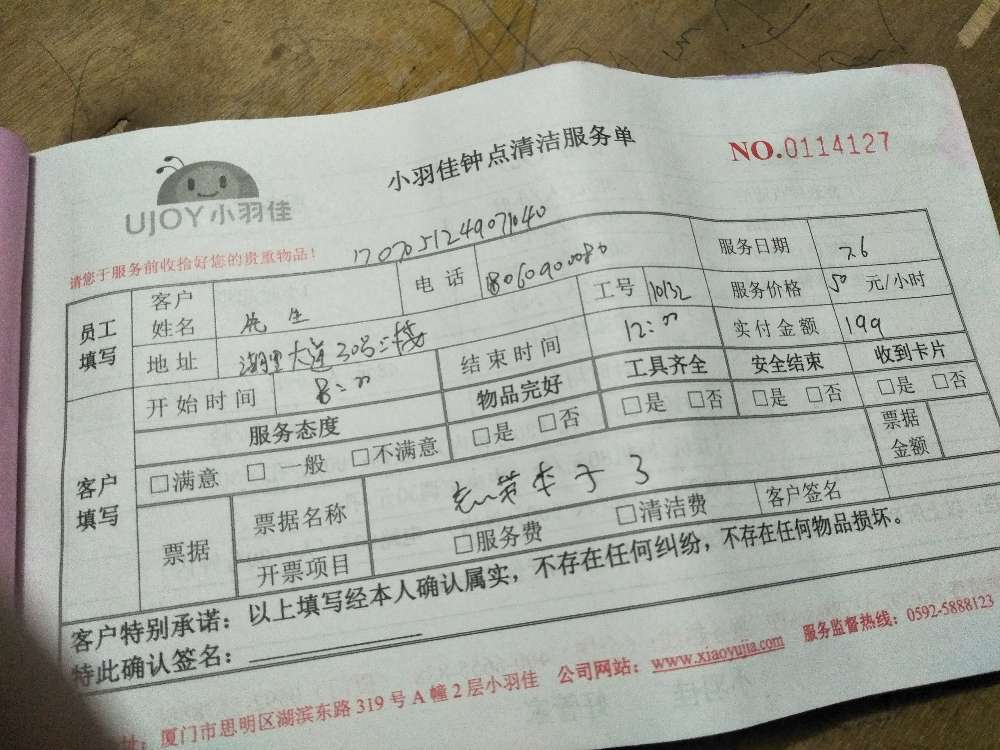 小羽佳钟点清洁服务单
NO.0114127
UJOY小羽佳
请您于服务前收拾好您的贵重物品！
员工填写 客户姓名 先生 电话 服务日期
地址 工号 10132 服务价格 50 元/小时
开始时间 8:00 结束时间 12:00 实付金额 199
客户填写 服务态度 物品完好 工具齐全 安全结束 收到卡片
□满意 □一般 □不满意 □是 □否 □是 □否 □是 □否 □是 □否
票据 票据名称 票据金额
开票项目 □服务费 □清洁费 客户签名
客户特别承诺：以上填写经本人确认属实，不存在任何纠纷，不存在任何物品损坏。
特此确认签名：
址：厦门市思明区湖滨东路 319 号 A 幢 2 层小羽佳 公司网站：www.xiaoyujia.com 服务监督热线：0592-5888123